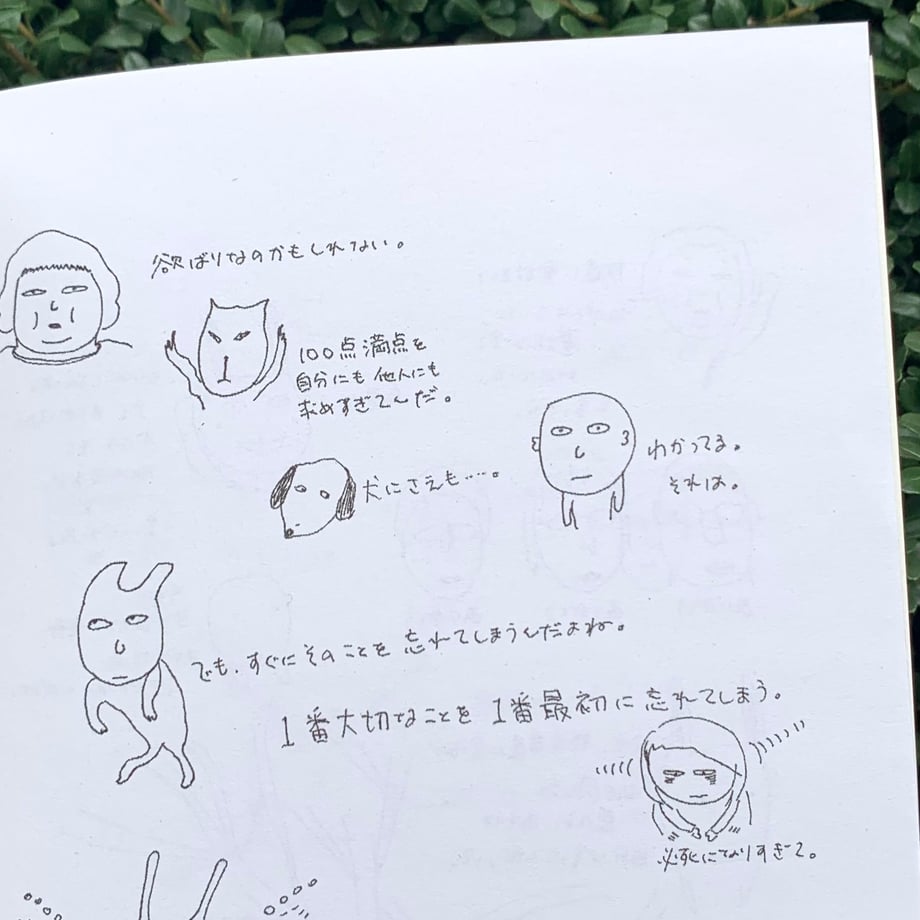 欲ばりなのかもしれない。
100点満点を
自分にも他人にも
求めすぎてんだ。
犬にさえも……。
わかってる。
それは。
でも、すぐにそのことを忘れてしまうんだよね。
1番大切なことを1番最初に忘れてしまう。
必死になりすぎて。